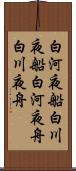 白河夜船白川
夜船白河夜舟
白川夜舟